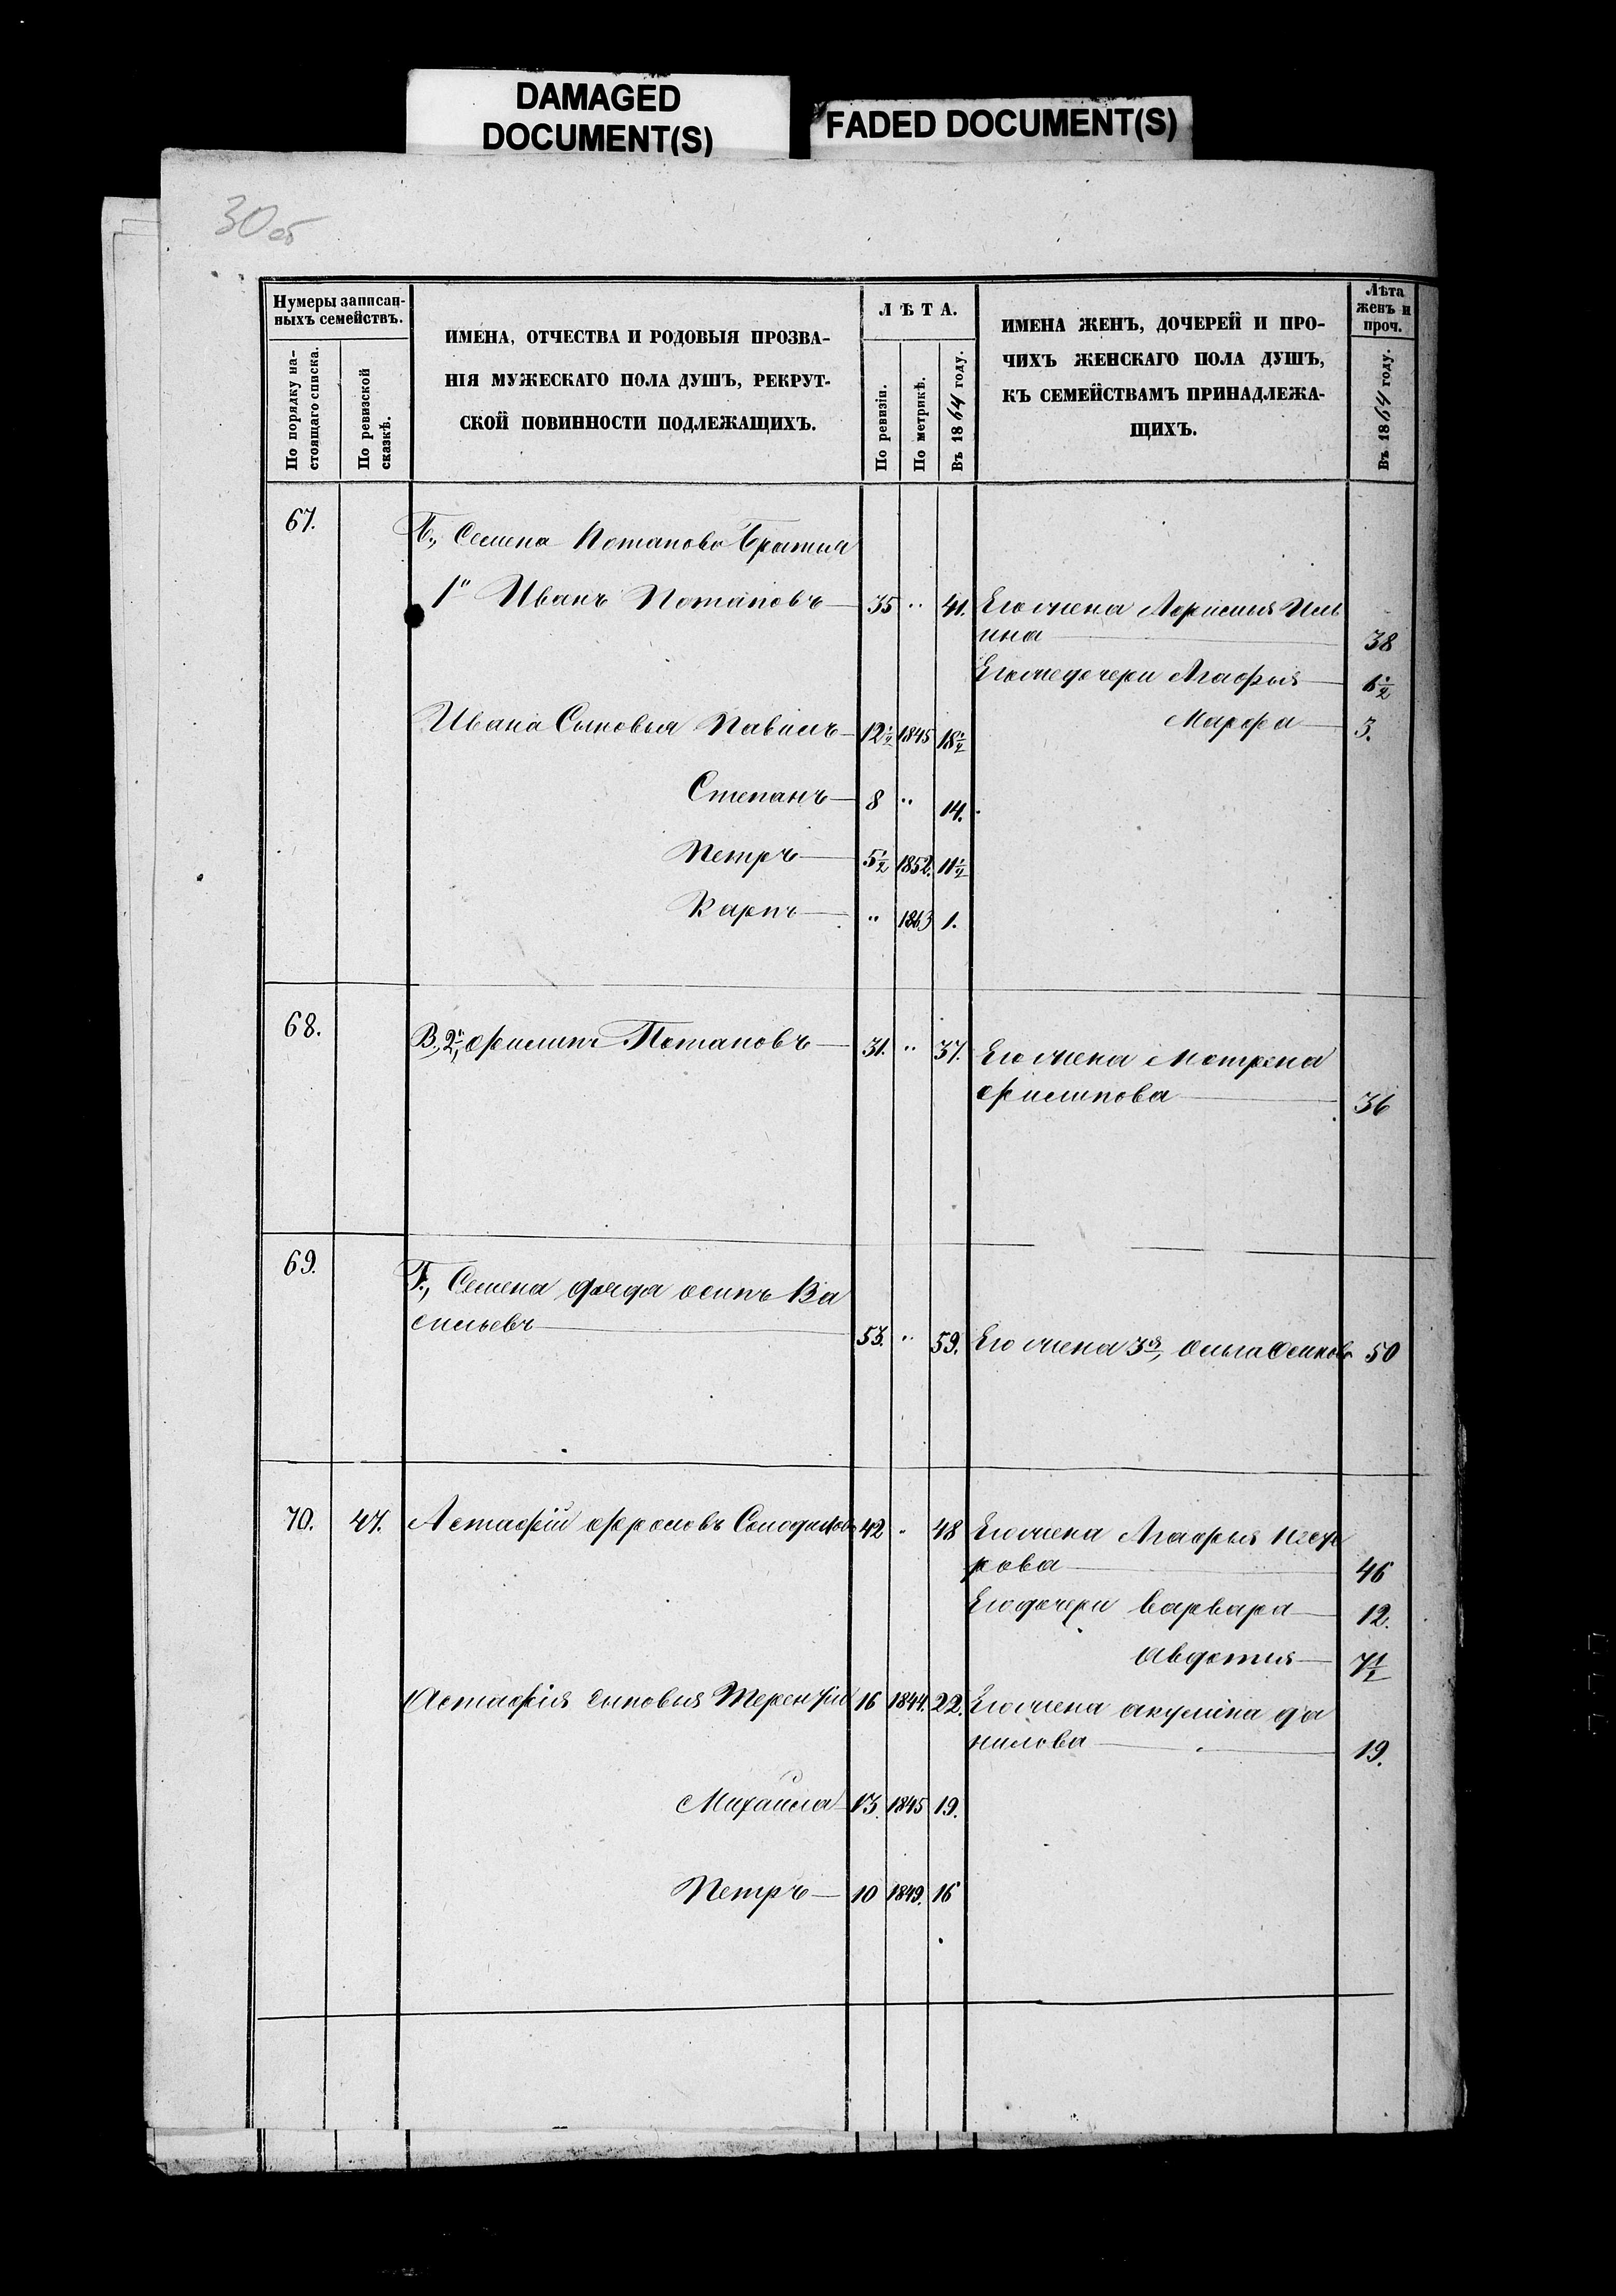 DAMAGED
DOCUMENT(S)
FADED DOCUMENT(S)
30 об
Нумеры записан-
ныхъ семействъ.
По порядку на-
стоящаго списка.
По ревизской
сказкѣ.
ИМЕНА, ОТЧЕСТВА И РОДОВЫЯ ПРОЗВА-
НІЯ МУЖЕСКАГО ПОЛА ДУШЪ, РЕКРУТ-
СКОЙ ПОВИННОСТИ ПОДЛЕЖАЩИХЪ.
ЛѢТА.
По ревизіи.
По метрикѣ.
Въ 1864 году.
ИМЕНА ЖЕНЪ, ДОЧЕРЕЙ И ПРО-
ЧИХЪ ЖЕНСКАГО ПОЛА ДУШЪ,
КЪ СЕМЕЙСТВАМЪ ПРИНАДЛЕЖА-
ЩИХЪ.
Лѣта
женъ и
проч.
Въ 1864 году.
67.
Б., Семена Потапова Братья
1й Иванъ Потаповъ 35 " 41. Его жена
ина 38
дочери Агафья 6½
Ивана Сыновья Павилъ 12½ 1845 18½ Марфа 3.
Степанъ 8 " 14.
Петръ 5½ 1852. 11½
Карпъ " 1863 1.
68. В., 2й, Филипъ Потаповъ 31. " 37. Его жена Матрена
Филипова 36
69. Г., Семена дядя осипъ Ва
сильевъ 53. " 59. Его жена 3я, Ольга Осипова 50
70. 47. Астафій Фроловъ 42 " 48 Его жена Агафья
рова 46
Его дочери Варвара 12.
Авдотья 7½
Астафія сыновья Терентій 16 1844. 22. Его жена акулина да
нилова 19.
Михайла 13. 1845 19.
Петръ 10 1849. 16